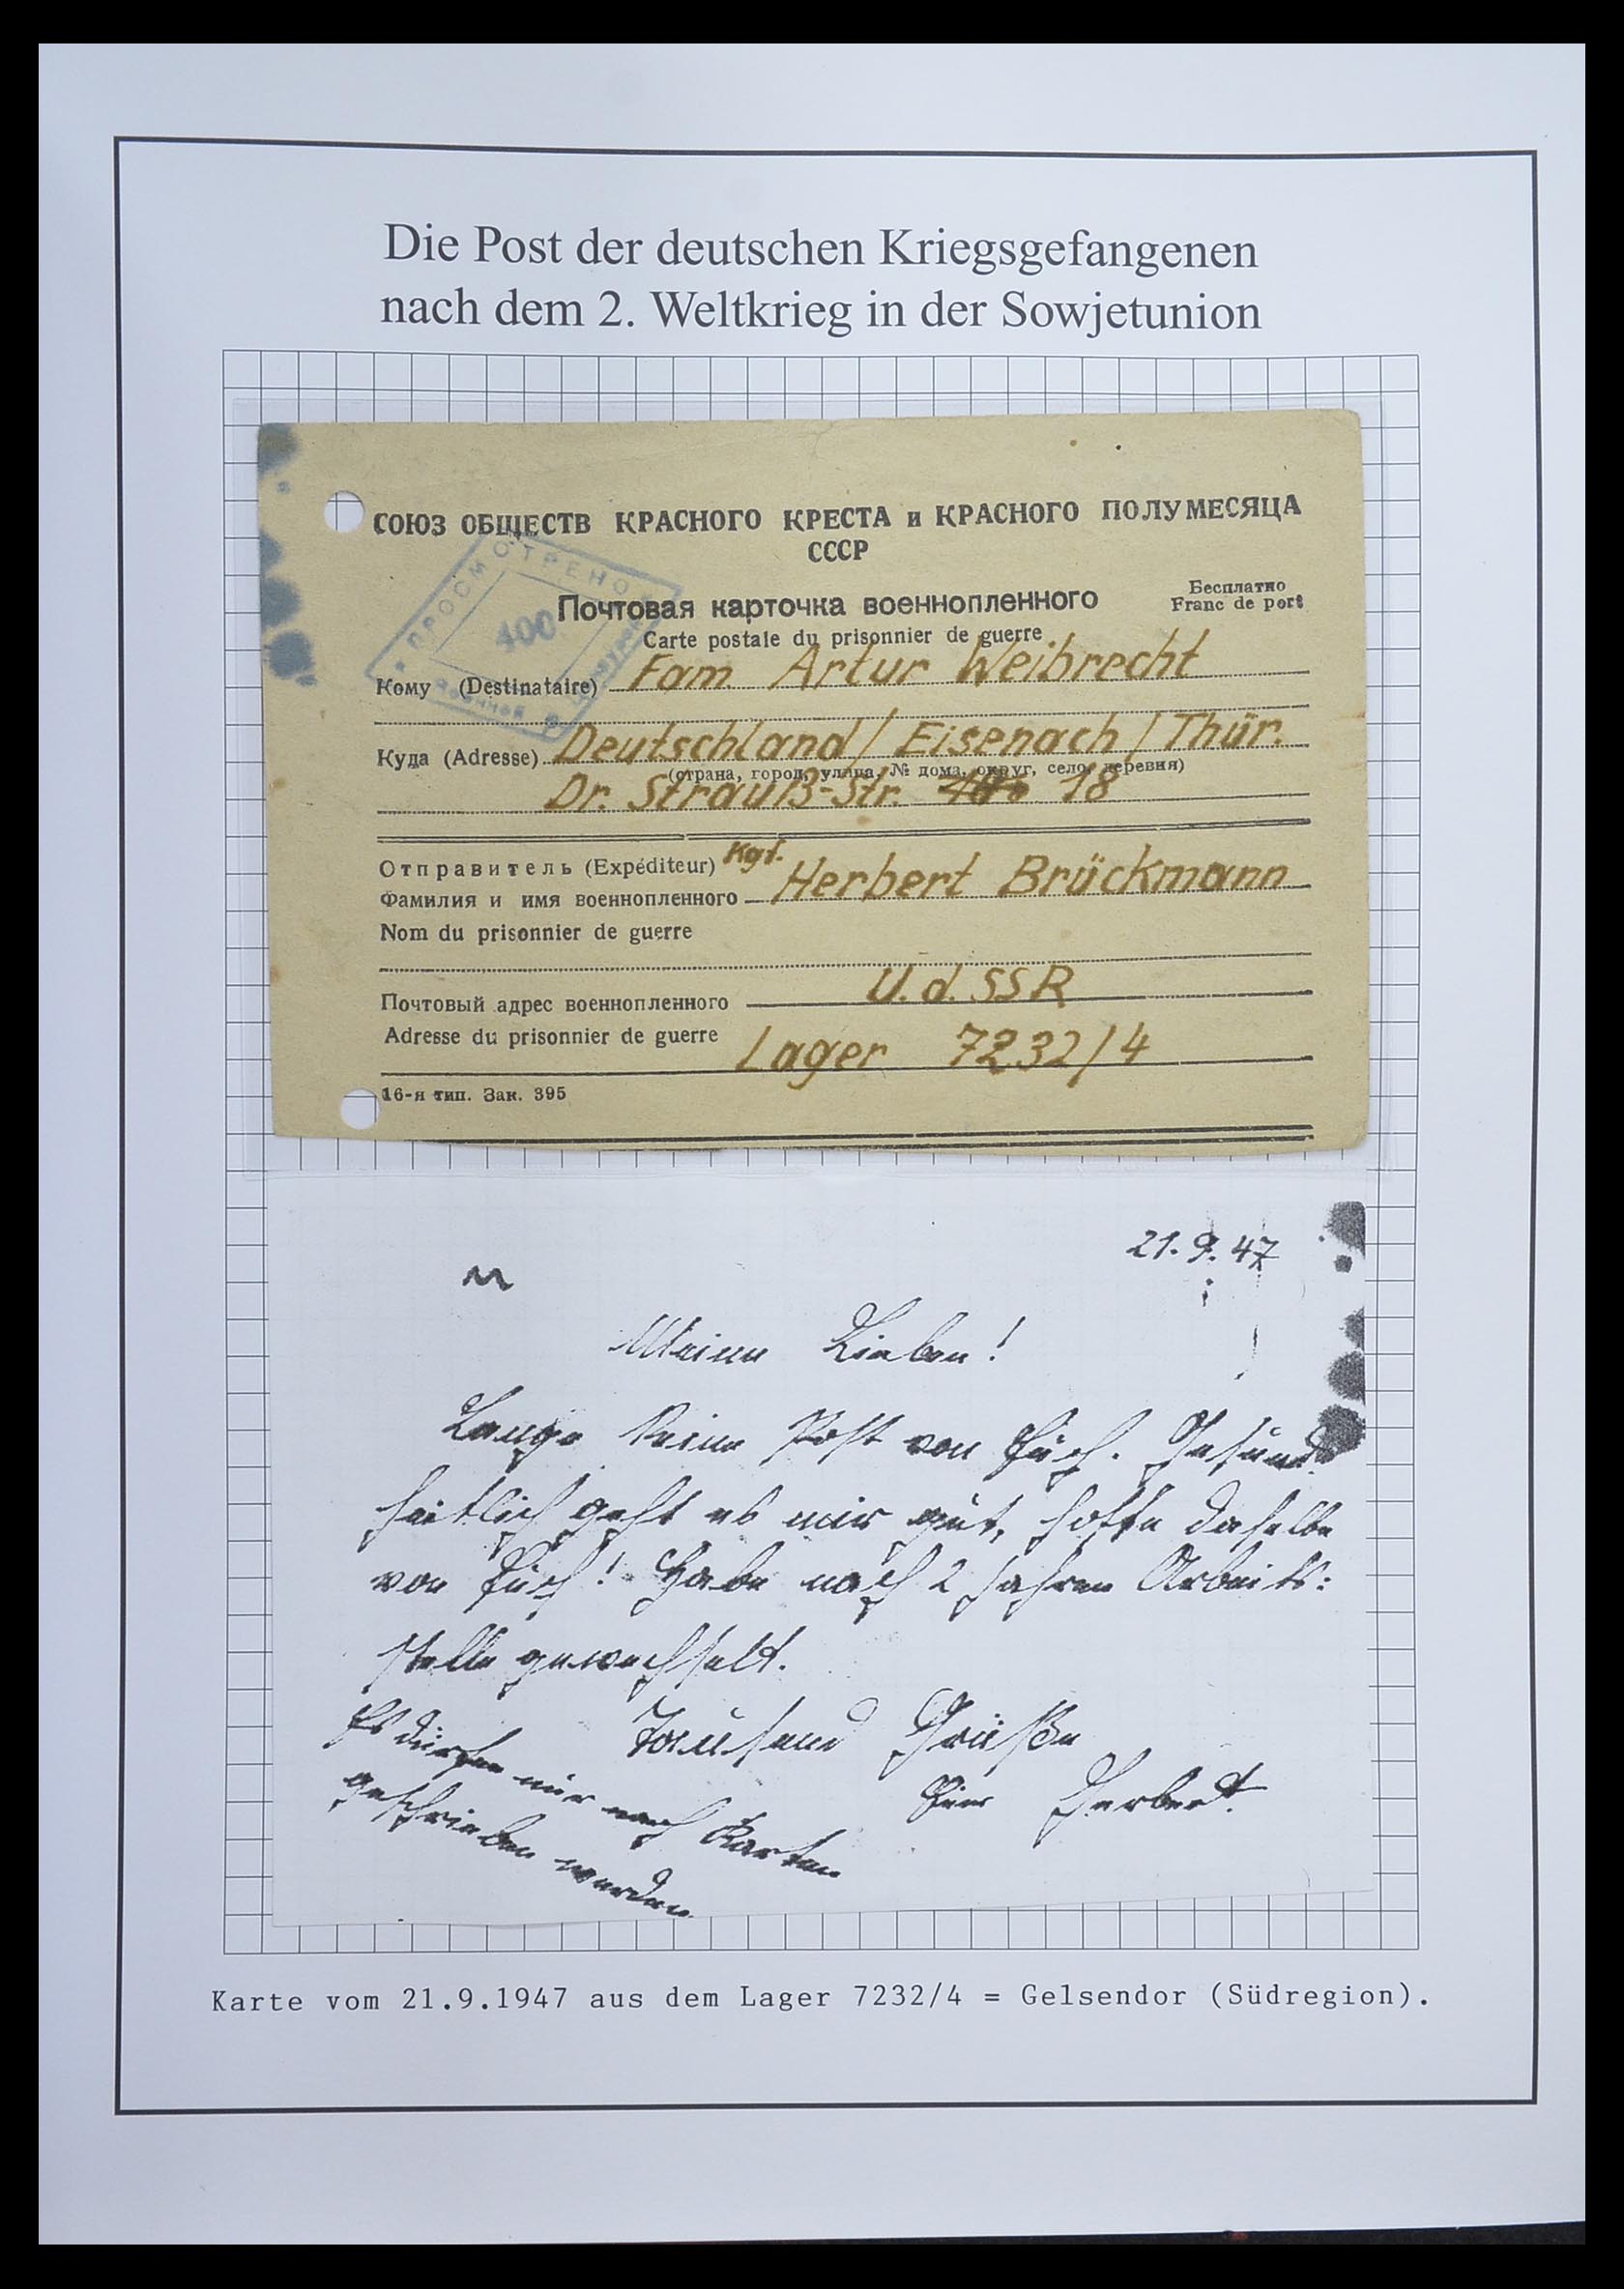 Die Post der deutschen Kriegsgefangenen
nach dem 2. Weltkrieg in der Sowjetunion
СОЮЗ ОБЩЕСТВ КРАСНОГО КРЕСТА и КРАСНОГО ПОЛУМЕСЯЦА
СССР
ПРОСМОТРЕНО
400
Почтовая карточка военнопленного
Бесплатно
Franc de port
Carte postale du prisonnier de guerre
Кому (Destinataire) Fam. Artur Weibrecht
Куда (Adresse) Deutschland / Eisenach / Thür.
(страна, город, улица, № дома, округ, село, деревня)
Dr. Strauß-Str. 18
Отправитель (Expéditeur) Kgf.
Фамилия и имя военнопленного Herbert Brückmann
Nom du prisonnier de guerre
Почтовый адрес военнопленного U.d.SSR
Adresse du prisonnier de guerre Lager 7232/4
16-я тип. Зак. 395
21.9.47
Meine Lieben!
Lange keine Post von Euch. Gesund
heitlich geht es mir gut, hoffe dasselbe
von Euch! Habe nach 2 Jahren Arbeits:
stelle gewechselt.
Tausend Grüße
Euer Herbert.
Es dürfen nur noch Karten
geschrieben werden
Karte vom 21.9.1947 aus dem Lager 7232/4 = Gelsendor (Südregion).